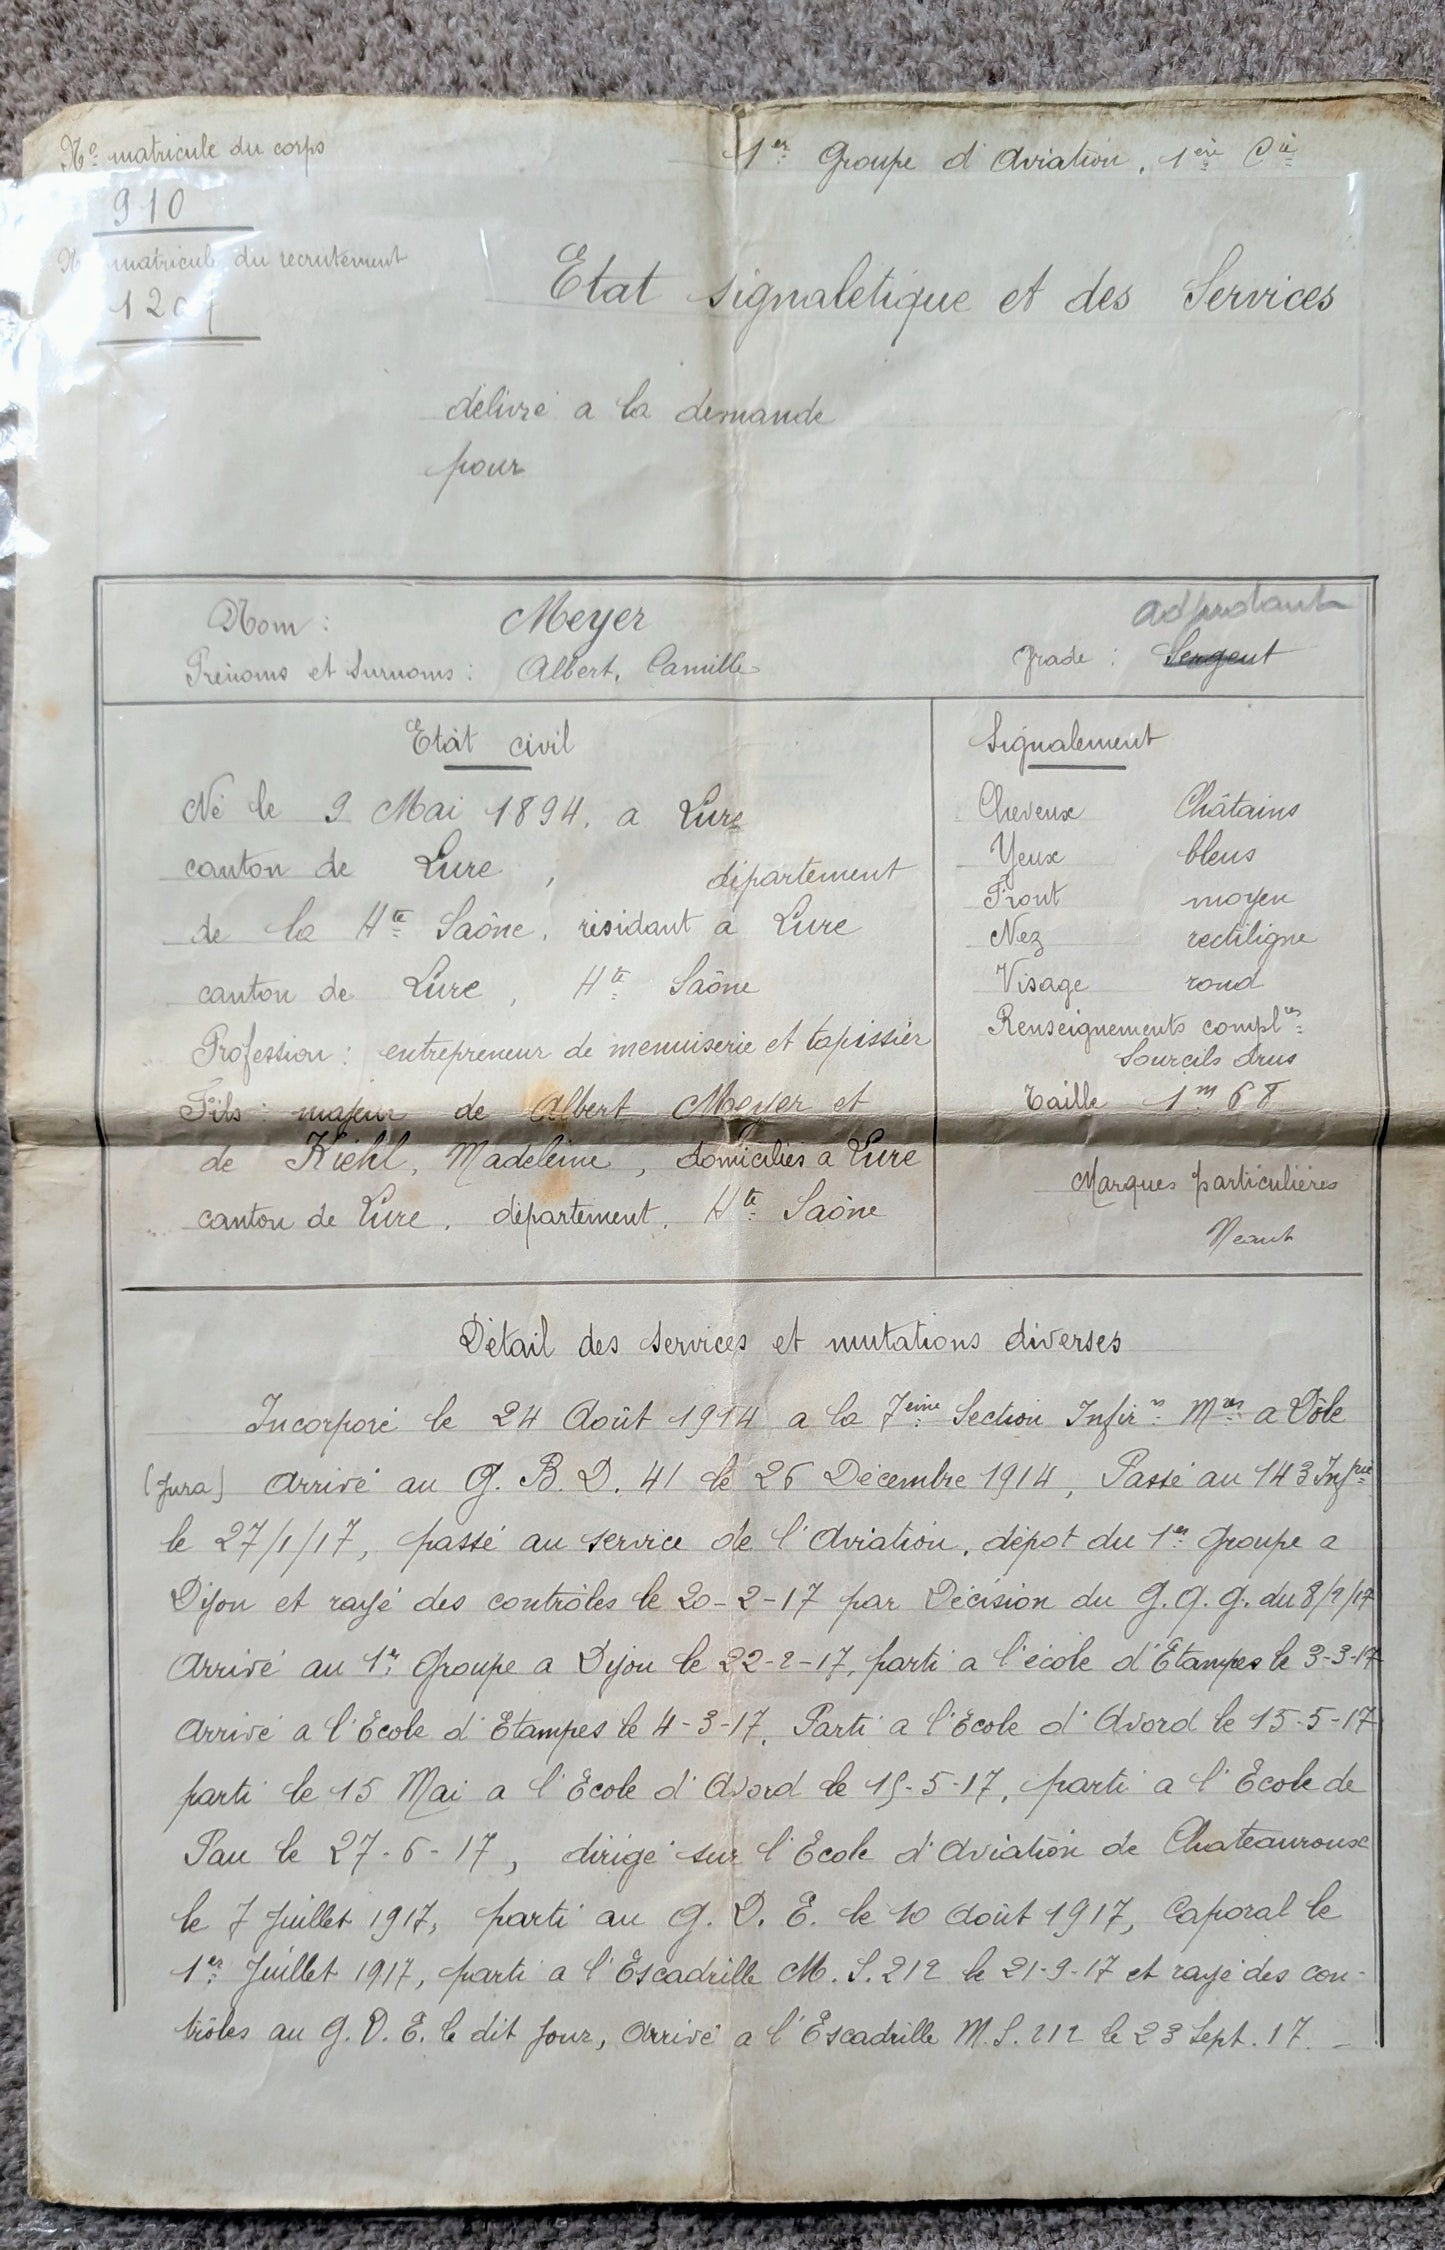 No matricule du corps
910
No matricule du recrutement
1er Groupe d'Aviation, 1ère Cie
Etat signalétique et des Services
délivré a la demande
pour
Nom : Meyer
adjudant
Prénoms et Surnoms : Albert, Camille
Grade : Sergent
Etat civil
Né le 9 Mai 1894, a Lure
canton de Lure, département
de la Hte Saône, résidant a Lure
canton de Lure, Hte Saône
Profession : entrepreneur de menuiserie et tapissier
Fils : majeur de Albert Meyer et
de Kiehl, Madeleine, domiciliés a Lure
canton de Lure, département, Hte Saône
Signalement
Cheveux Châtains
Yeux bleus
Front moyen
Nez rectiligne
Visage rond
Renseignements complres
Sourcils drus
Taille 1m 68
Marques particulières
Néant
Détail des services et mutations diverses
Incorporé le 24 Août 1914 a la 7ème Section Infirrs Mres a Dôle
(Jura) Arrivé au G. B. D. 41 le 26 Décembre 1914, Passé au 143 Infrie
le 27/1/17, passé au service de l'Aviation, dépot du 1er Groupe a
Dijon et rayé des contrôles le 20-2-17 par Décision du G. Q. G. du 8/2/17
Arrivé au 1er Groupe a Dijon le 22-2-17, parti a l'école d'Etampes le 3-3-17
Arrivé a l'Ecole d'Etampes le 4-3-17. Parti a l'Ecole d'Avord le 15-5-17
parti le 15 Mai a l'Ecole d'Avord le 15-5-17, parti a l'Ecole de
Pau le 27-6-17, dirigé sur l'Ecole d'Aviation de Chateauroux
le 7 Juillet 1917, parti au G. D. E. le 10 Août 1917, Caporal le
1er Juillet 1917, parti a l'Escadrille M. S. 212 le 21-9-17 et rayé des con-
trôles au G. D. E. le dit jour, Arrivé a l'Escadrille M. S. 212 le 23 Sept. 17. -